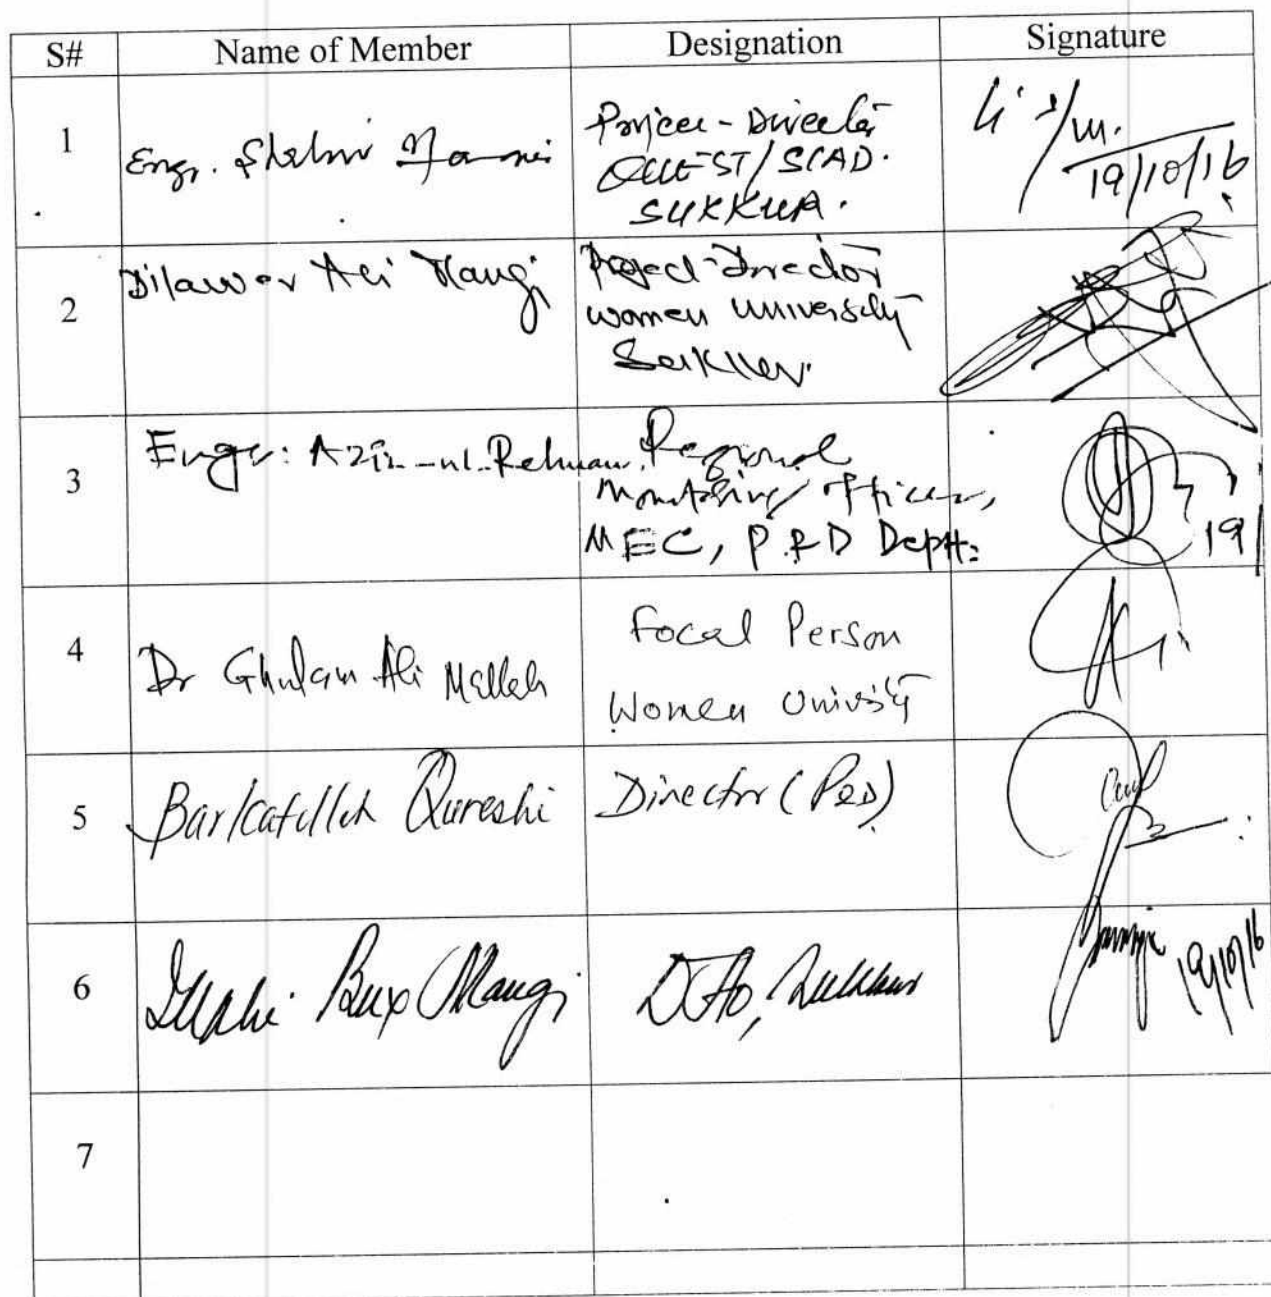 S# Name of Member Designation Signature
1 Engr. Project-Director
QUEST/SCAD.
SUKKUR.
19/10/16
2 Dilawar Ali Mangi Project-Director
Women University
Sukkur.
3 Engr: Aziz-ul-Rehman Regional
Monitoring Officer,
MEC, P&D Deptt:
19/
4 Dr Ghulam Ali Mallah Focal Person
Women University
5 Barkatullah Qureshi Director (P&D)
6 Bux Mangi DAO, Sukkur
19/10/16
7